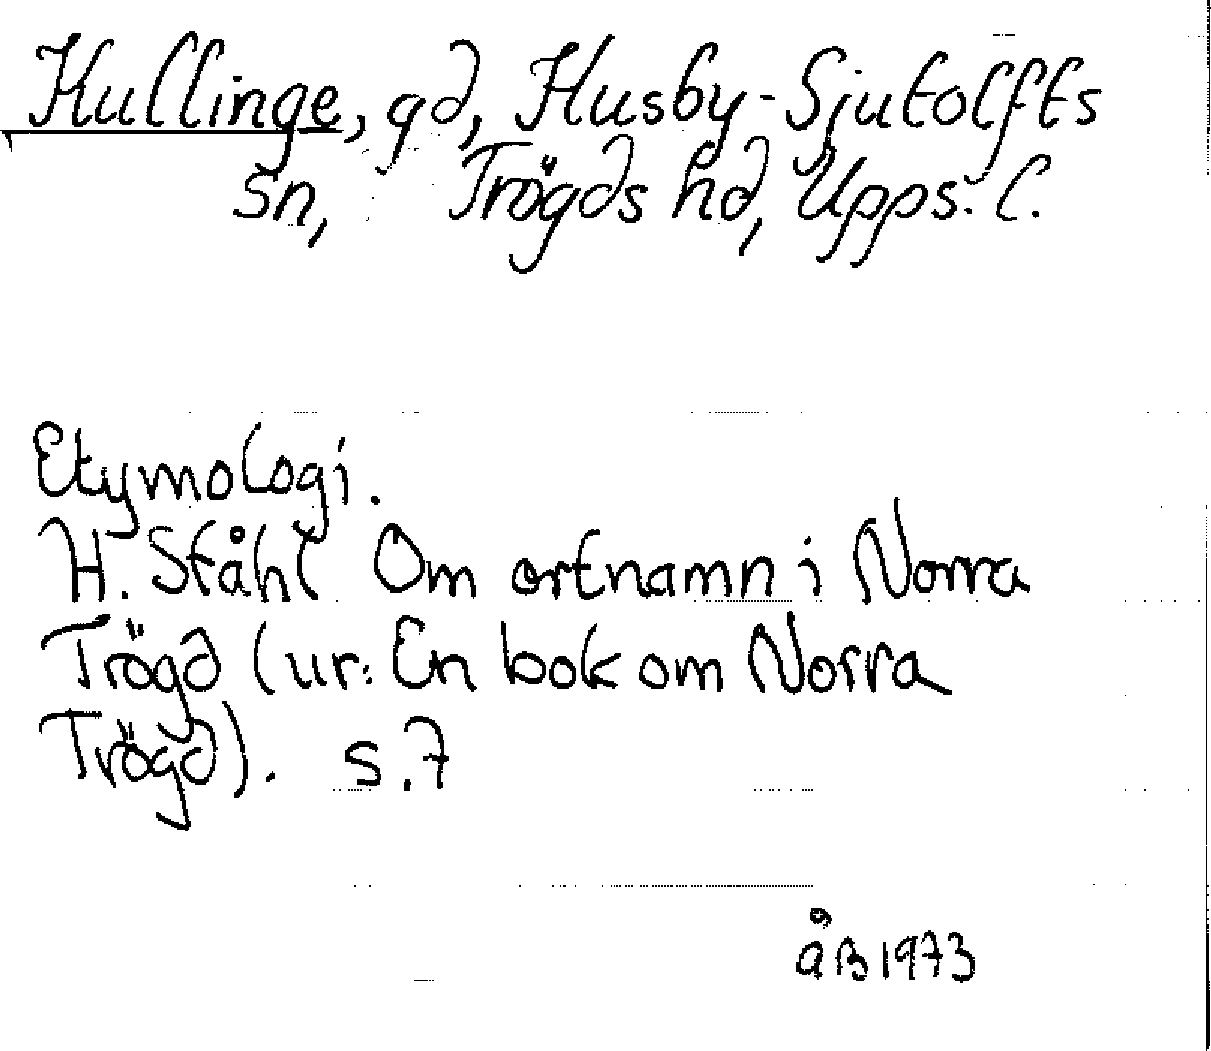 Hullinge, gd, Husby-Sjutolfts
sn, Trögds hd, Upps. l.
Etymologi.
H. Ståhl Om ortnamn i Norra
Trögd (ur: En bok om Norra
Trögd). s.7
ÅB 1973